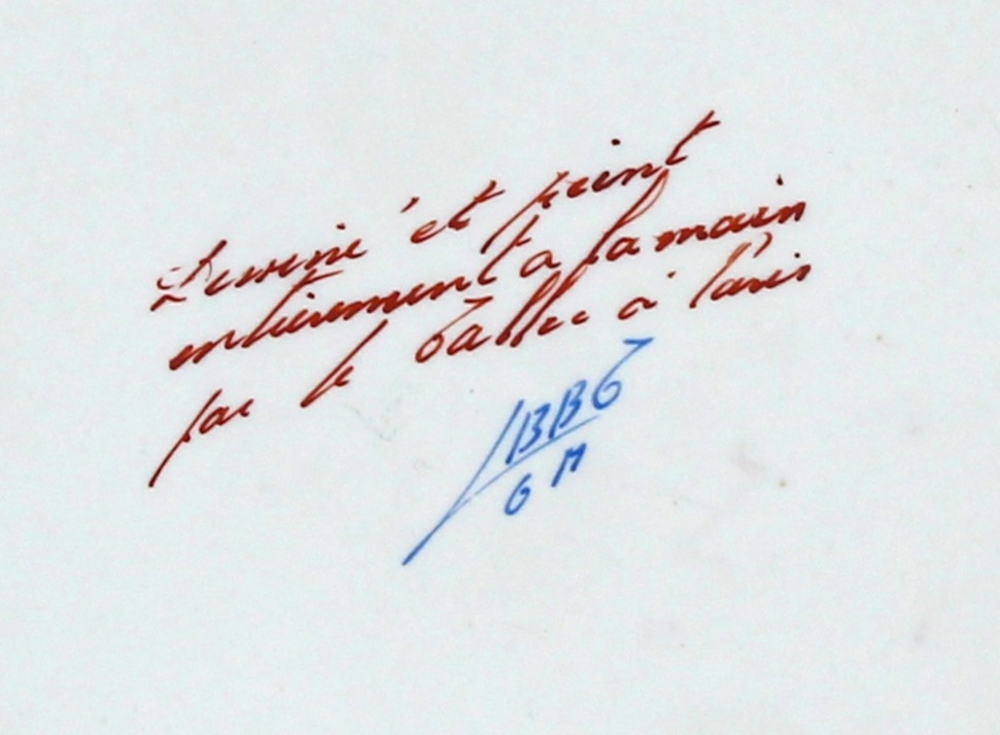 Dessiné et peint
entièrement a la main
par le Tallec à Paris
BBG
G M